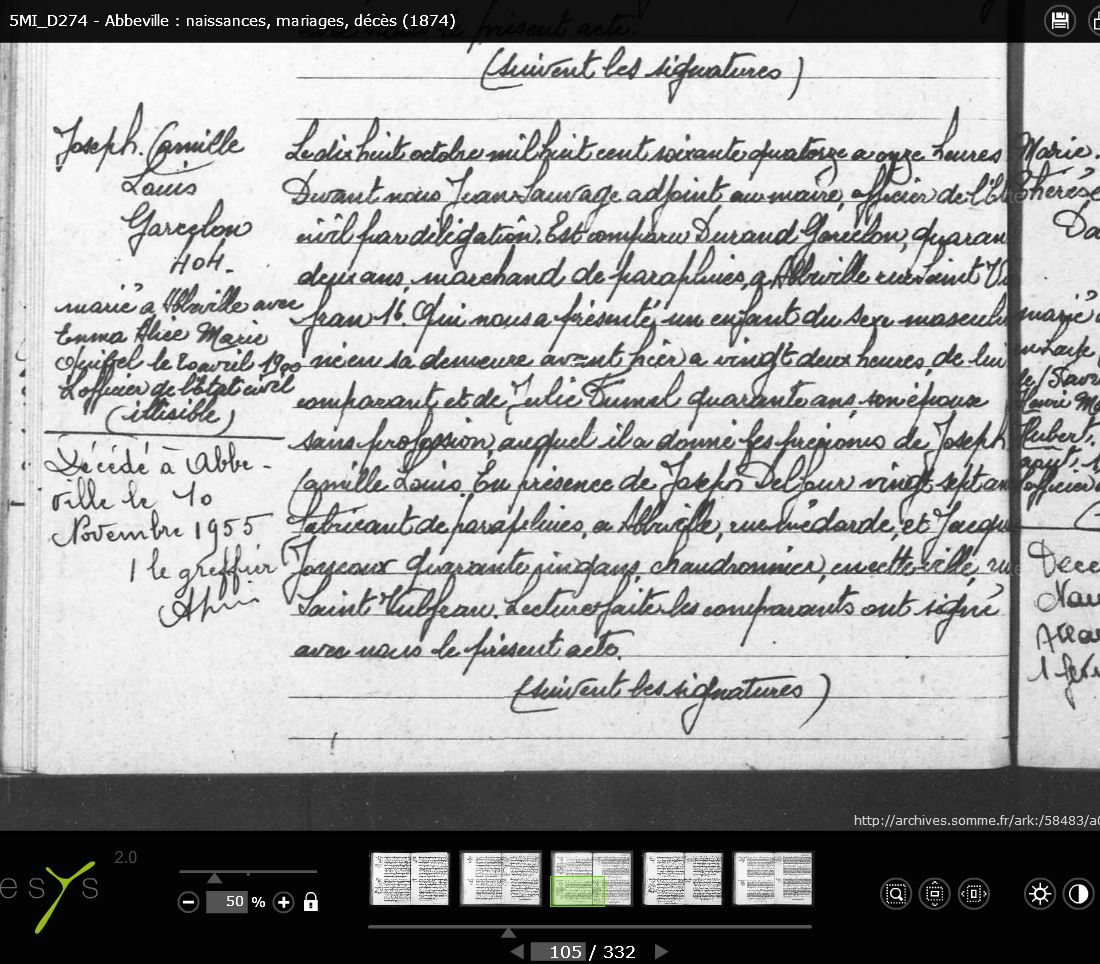 5MI_D274 - Abbeville : naissances, mariages, décès (1874)
avec nous le présent acte.
(suivent les signatures)
Joseph Camille
Louis
Garcelon
404.
marié à Abbeville avec
Emma Alice Marie
le 20 avril 1900
L'officier de l'Etat civil
(illisible)
Décédé à Abbe-
ville le 10
Novembre 1955
le greffier
Le dix huit octobre mil huit cent soixante quatorze a onze heures
Devant nous Jean Sauvage adjoint au maire, officier de l'Etat
civil par délégation. Est comparu Durand Garcelon, quaran
deux ans, marchand de parapluies, a Abbeville rue Saint Vul
fran 16. Qui nous a présenté un enfant du sexe masculin
né en sa demeure avant hier a vingt deux heures, de lui
comparant et de Julie Fumel quarante ans, son épouse
sans profession, auquel il a donné les prénoms de Joseph
Camille Louis. En présence de Joseph Delfour vingt sept ans
fabricant de parapluies, a Abbeville, rue médarde, et Jacque
Joyeaux quarante cinq ans, chaudronnier, en cette ville, rue
Saint Vulfran. Lecture faite les comparants ont signé
avec nous le présent acte.
(suivent les signatures)
Marie
Thérèse
Da
marié
Hubert
Décé
Nav
http://archives.somme.fr/ark:/58483/a0
esys 2.0
50 %
105 / 332